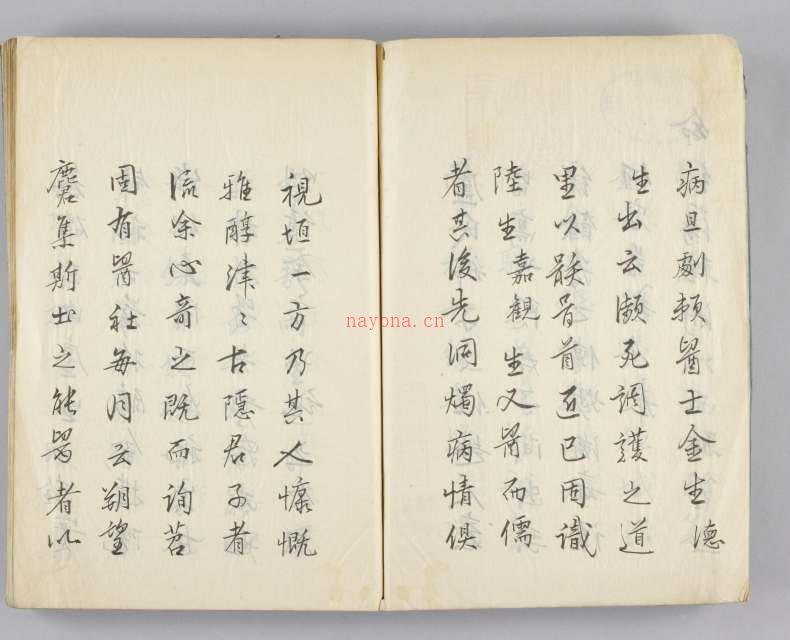 病且劇賴醫士金生德
生出之瀕死調護之道
里以首近已固識
陸生嘉觀生又醫而儒
者其後先洞燭病情俱
視垣一方乃其人慷慨
雅醇津〻古隱君子者
流余心奇之既而詢苕
固有醫社每月之朔望
麏集斯土之能醫者以
nayona.cn